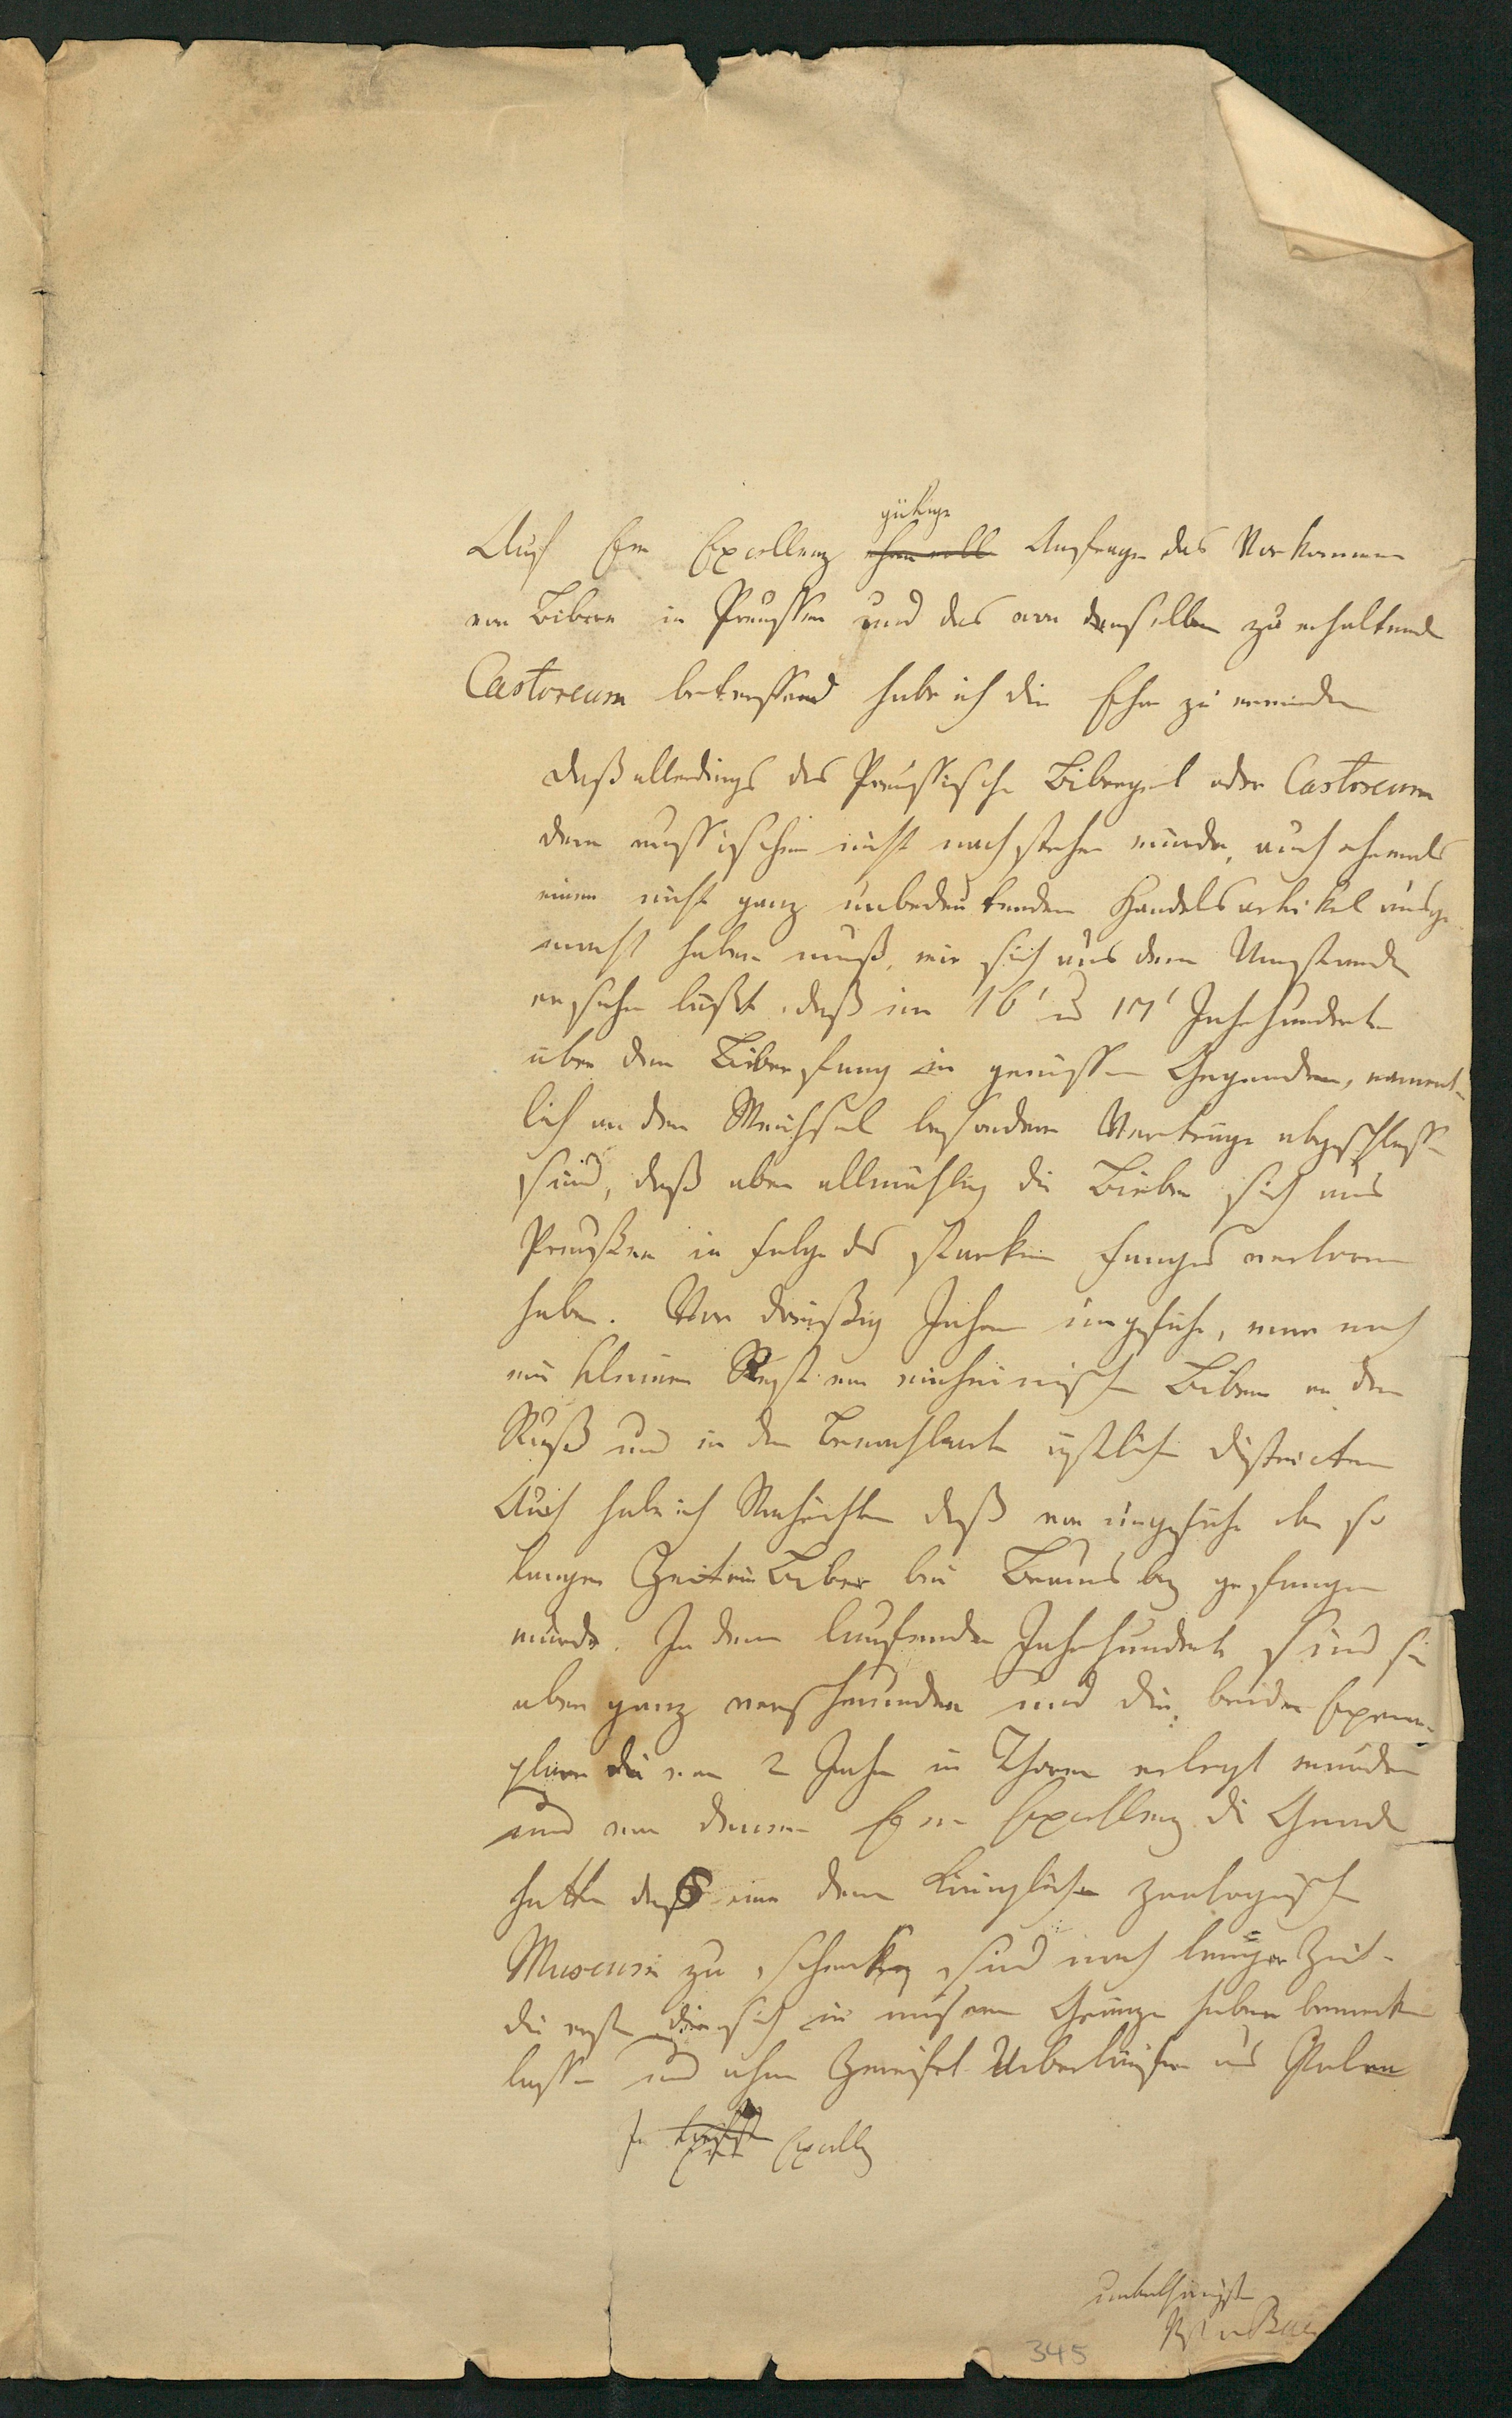 gütige
Auf Ew Excellenz ehrenvolle Anfrage das Vorkommen
von Bibern in Preussen und das von denselben zu erhaltende
Castoreum betreffend habe ich die Ehre zu
daß allerdings das Preussische Bibergeil oder Castoreum
dem russischen nicht nachstehen würde, auch ehemals
einen nicht ganz unbedeutenden Handelsartikel ausge
macht haben muß, wie sich aus dem Umstande
ersehen läßt, daß im 16' u 17' Jahrhunderte
über den Biberfang in gewissen Gegenden, nament-
lich an der Weichsel besondere Verträge abgeschlossen
sind, daß aber allmählig die Bieber sich aus
Preußen in Folge des starken Fanges verloren
haben. Vor dreißig Jahren ungefähr, war noch
ein kleiner Rest von einheimischen Bibern an der
Ruß und in den benachbarten östlichen Districten
Auch habe ich Nachrichten daß vor ungefähr eben so
langer Zeit ein Biber bei Braunsberg gefangen
wurde. In dem laufenden Jahrhundert sind sie
aber ganz verschwunden und die beiden Exem-
plare die vor 2 Jahren in Thorn erlegt wurden
und von denen Ew Excellenz die Gnade
hatten das eine dem Königlichen zoologischen
Museum zu schenken sind nach langer Zeit
die ersten die sich in unserer Gränze haben bemerken
lassen und ohne Zweifel Ueberläufer aus Polen
Excellenz
unterthänigster
v Baer
345